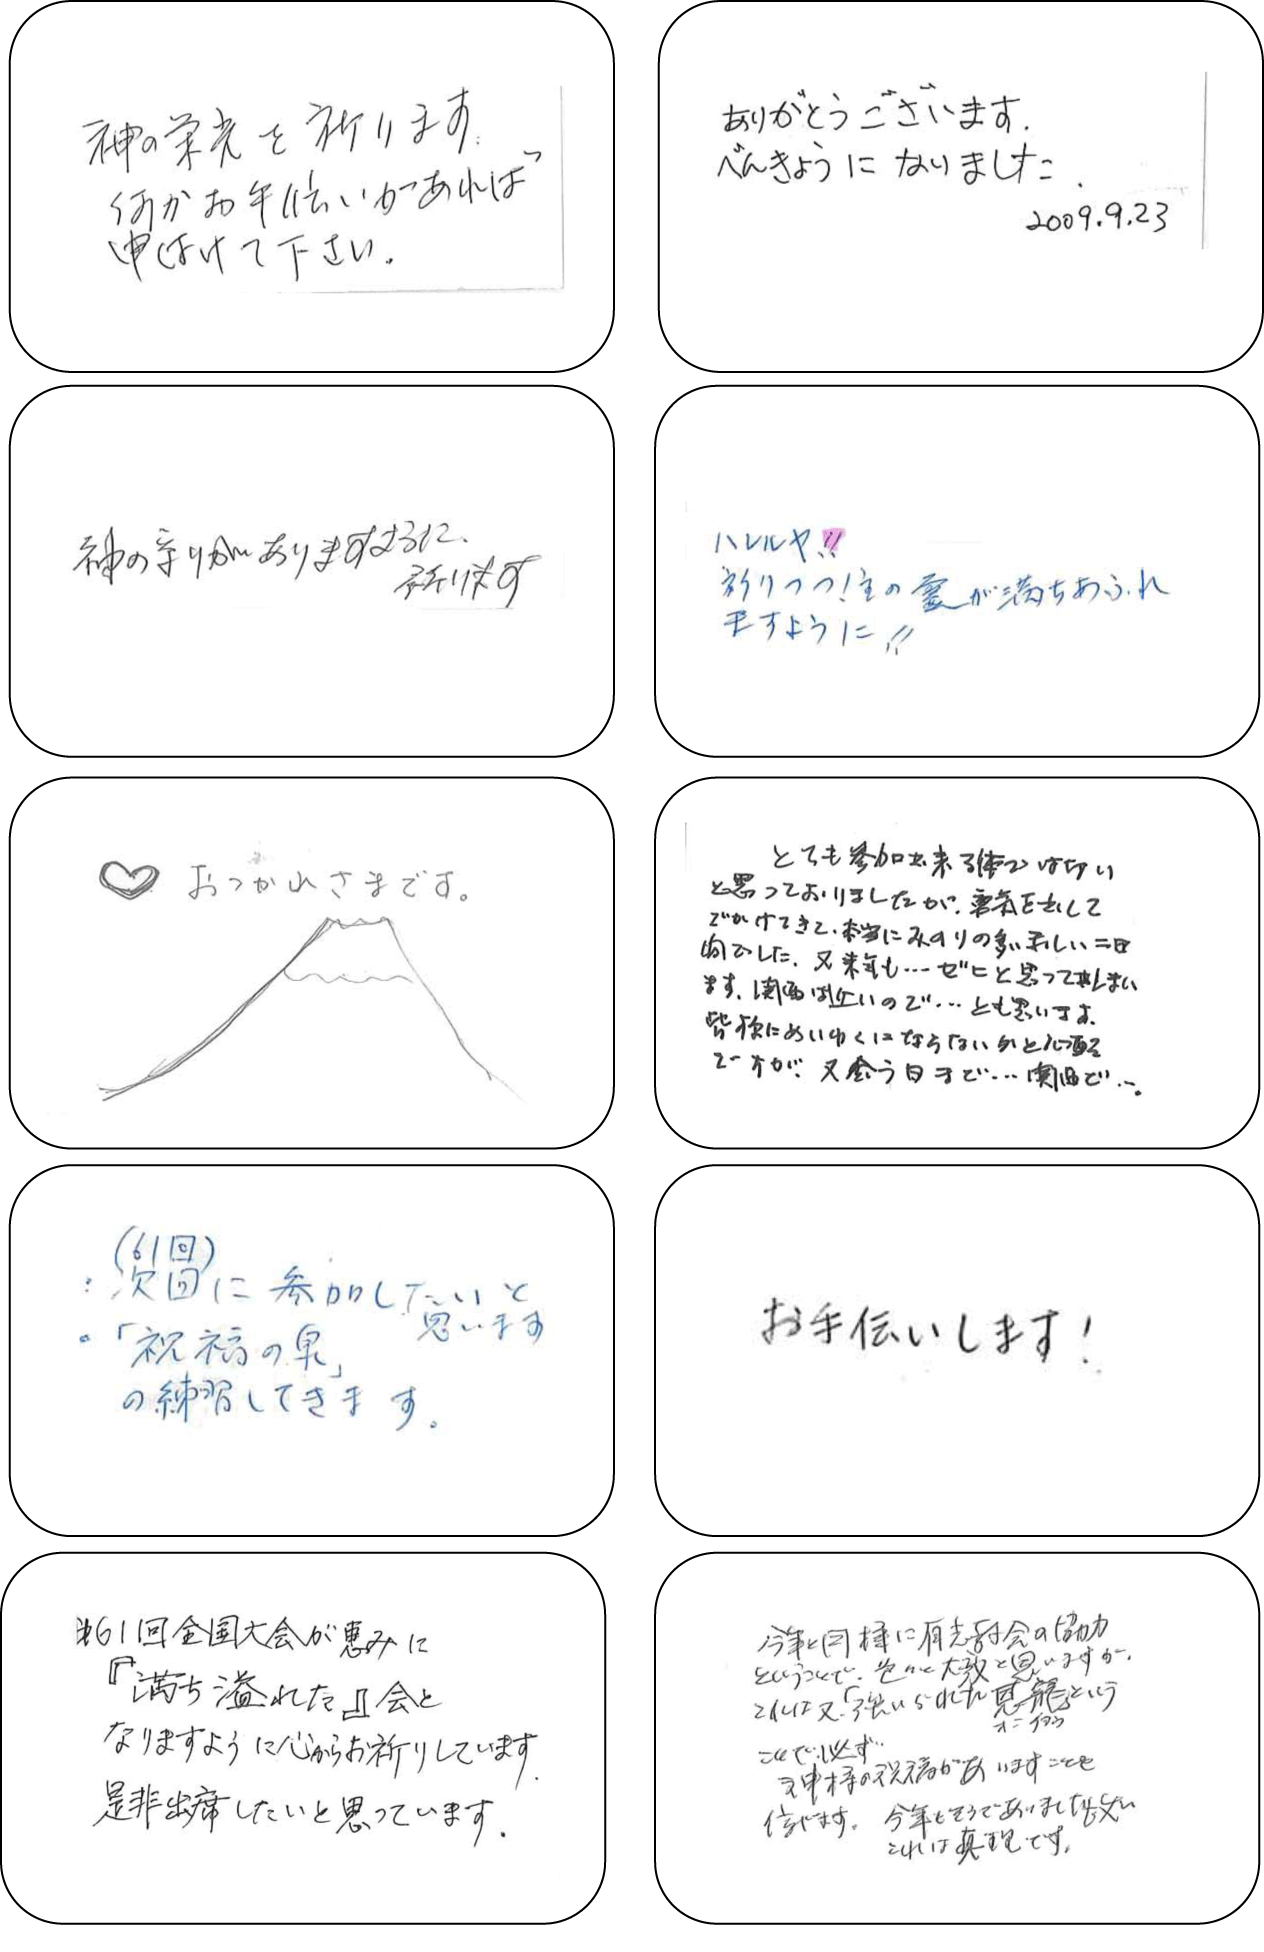 神の栄光を祈ります。
何かお手伝いがあれば
申しつけて下さい。
ありがとうございます.
べんきょうになりました.
2009.9.23
神の守りがありますように、
祈ります
ハレルヤ!!
祈りつつ!主の愛が満ちあふれ
ますように!!
おつかれさまです。
とても参加出来る体では
と思っておりましたが、勇気を出して
でかけてきて、本当にみのりの多い楽しい二日
間でした、又来年も…ゼヒと思って
ます、関西は近いので…とも思います。
皆様にめいわくにならないかと心配
ですが、又会う日まで…関西で…。
(61回)
:次回に参加したいと
思います
。「祝福の泉」
の練習してきます。
お手伝いします!
第61回全国大会が恵みに
『満ち溢れた』会と
なりますように心からお祈りしています.
是非出席したいと思っています.
今年と同様に有志教会の協力
ということで、色々と大変と思いますが、
これは又「強いられた恩寵」という
ことで、必ず
神様の祝福がありますことを
信じます。今年もそうでありました
これは真理です。